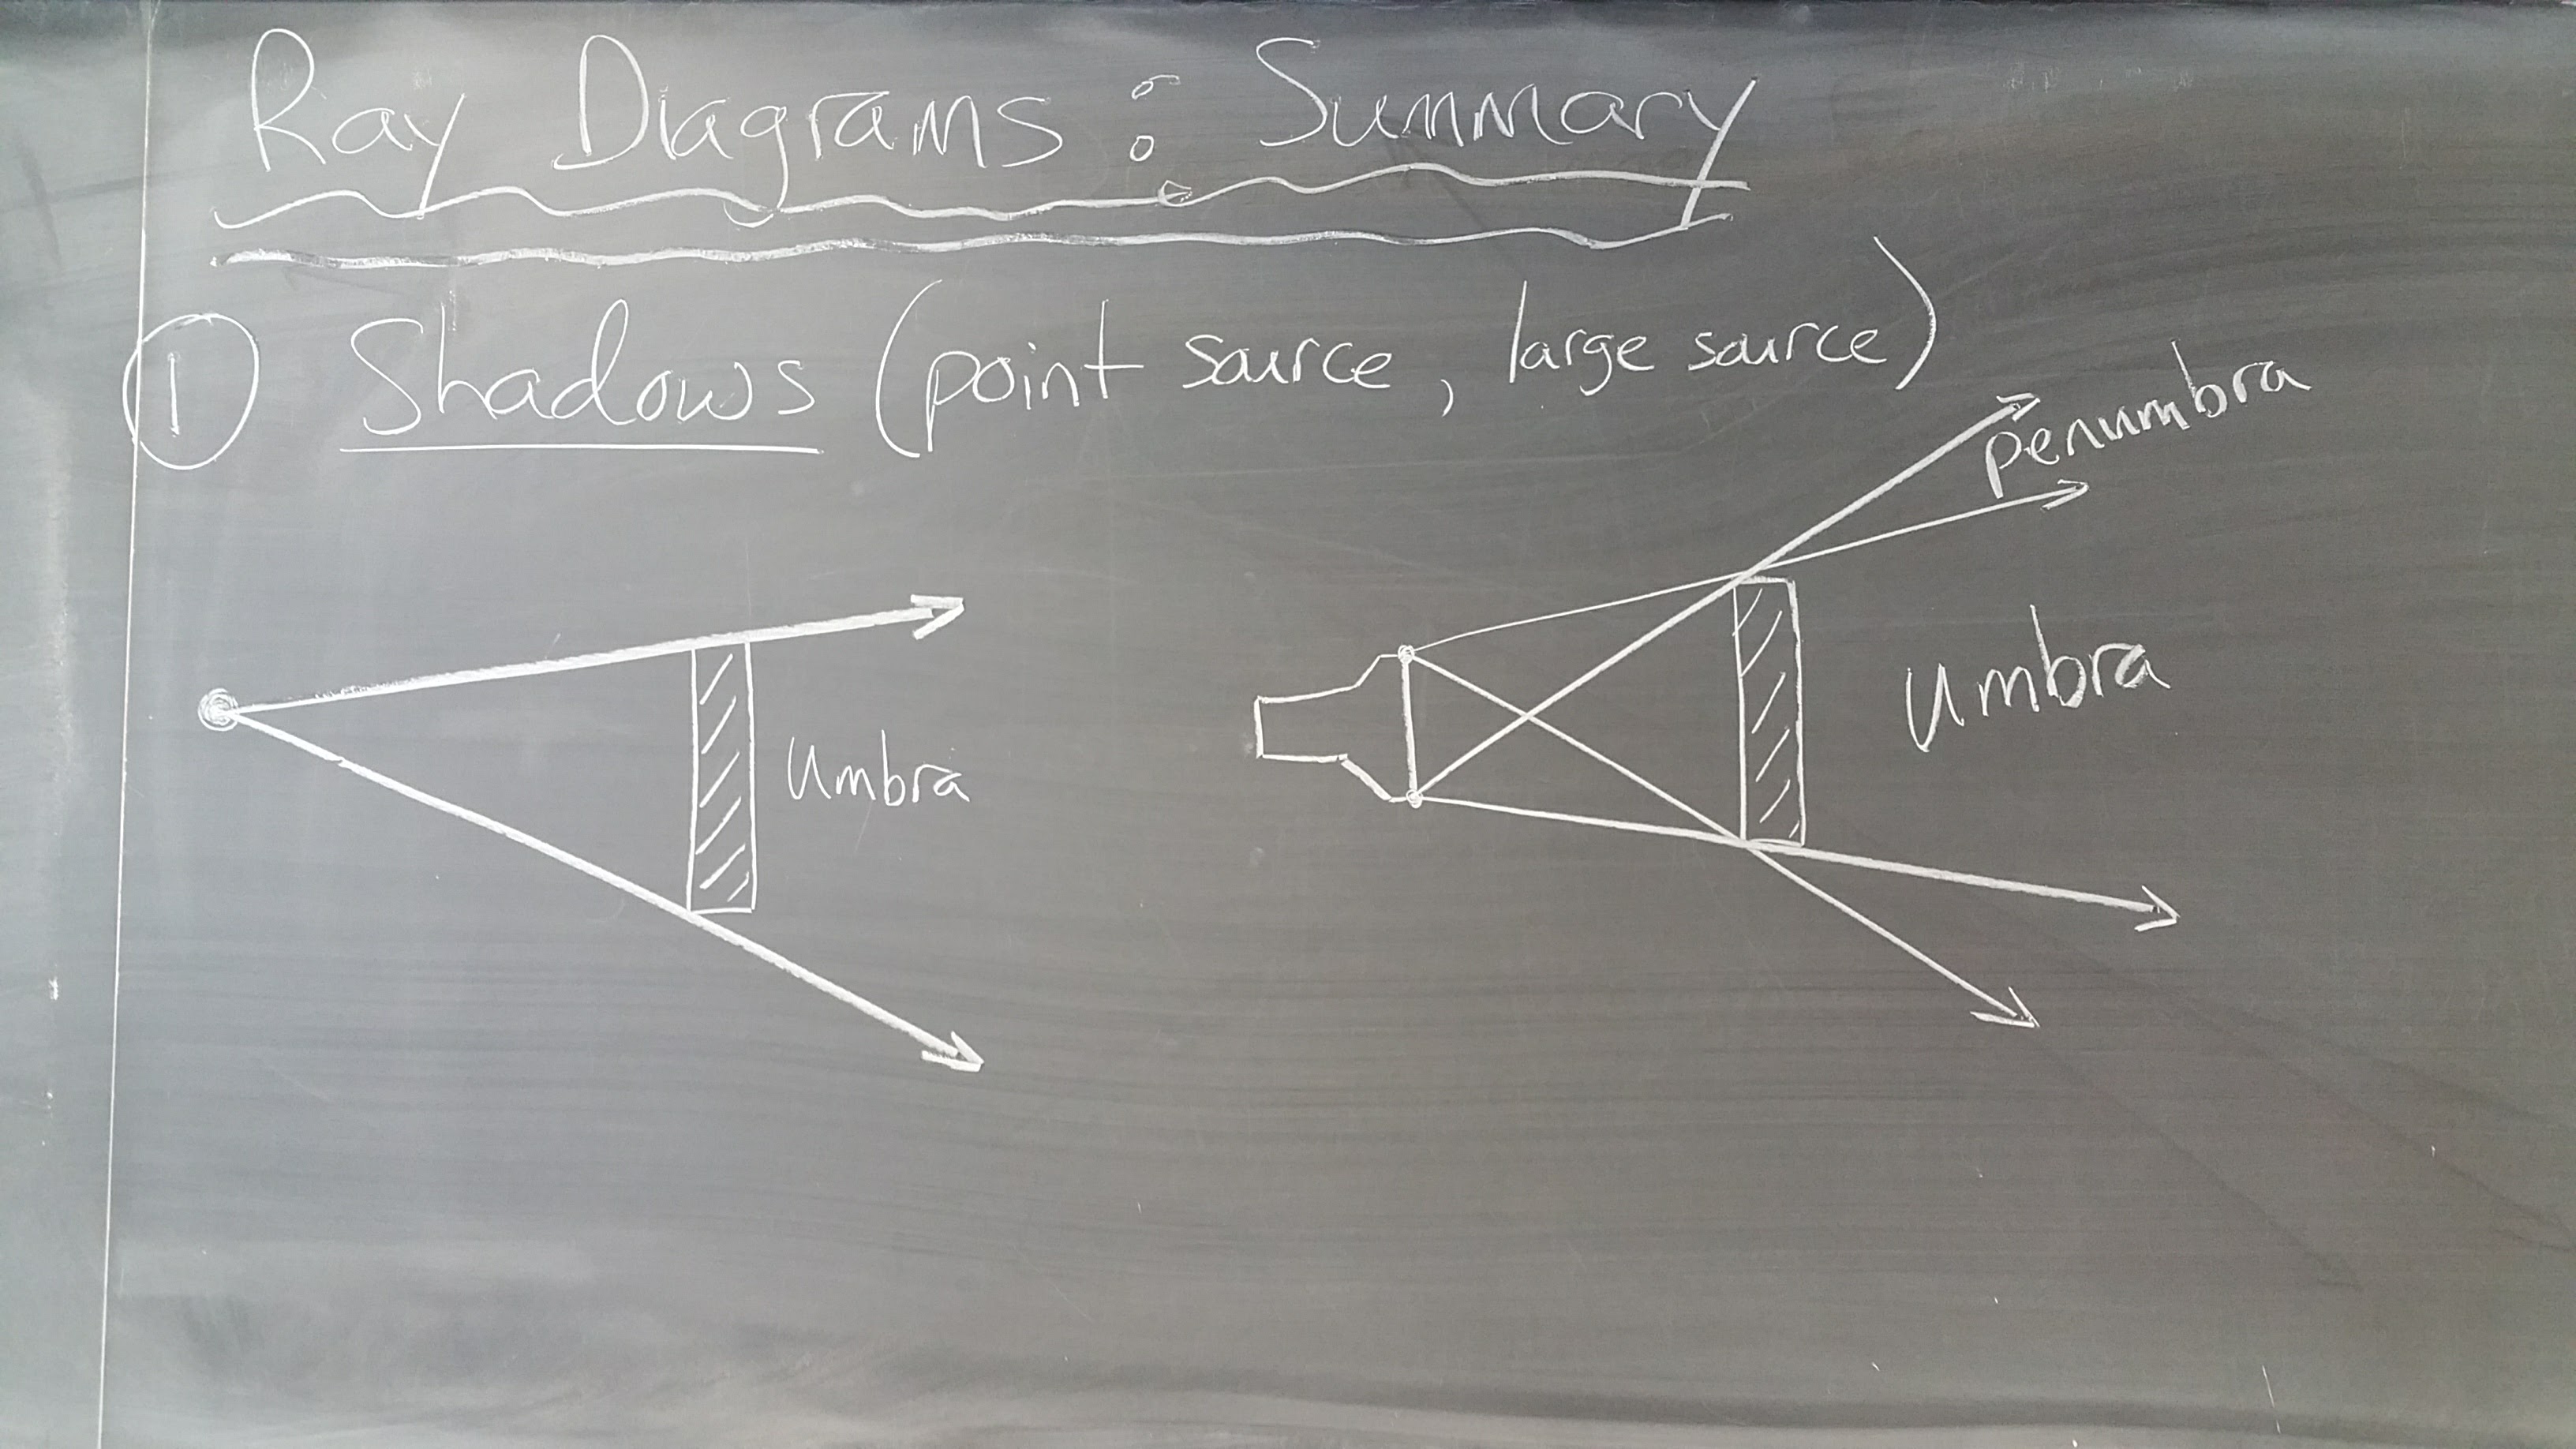 Ray Diagrams : Summary
1 Shadows (point source, large source)
penumbra
Umbra
Umbra